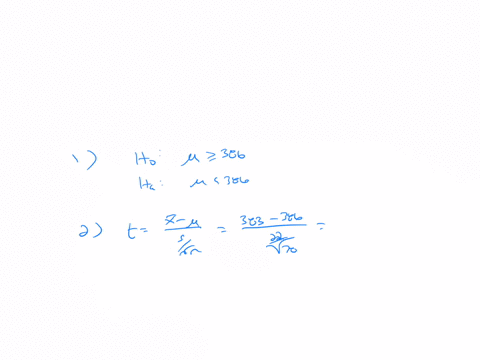 1) H₀: μ ≥ 386
Hₐ: μ < 386
2) t = x̄ - μ / s/√n = 383 - 386 / 22/√20 =